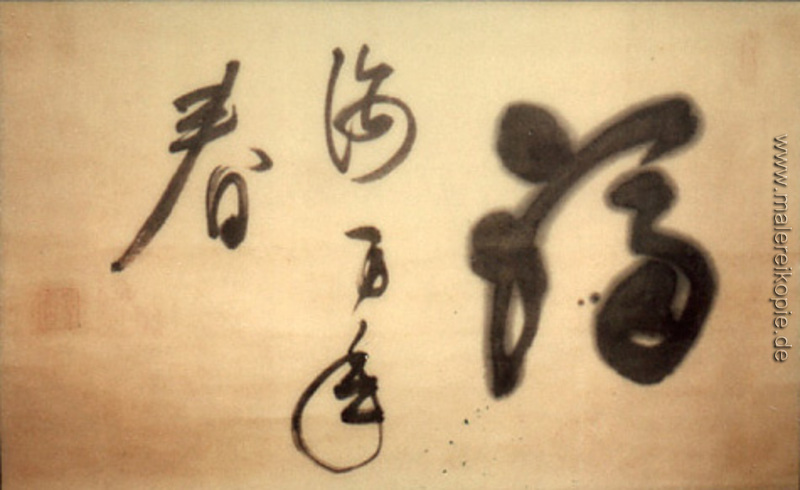 福
海万年
春
www.malereikopie.de